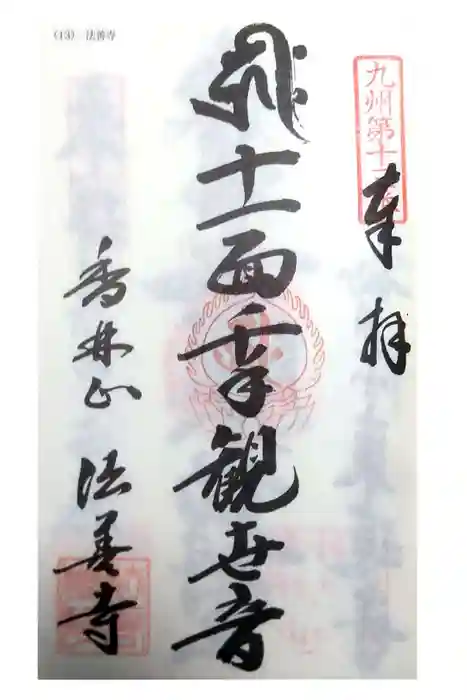 (13) 法善寺
九州第十三番
奉拝
十一面千手観世音
香林山 法善寺